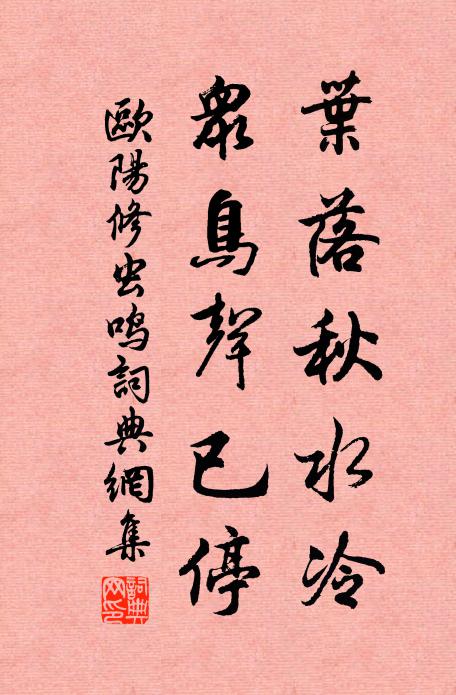 葉落秋水冷
眾鳥聲已停
歐陽修虫鳴詞典網集
詞典網印